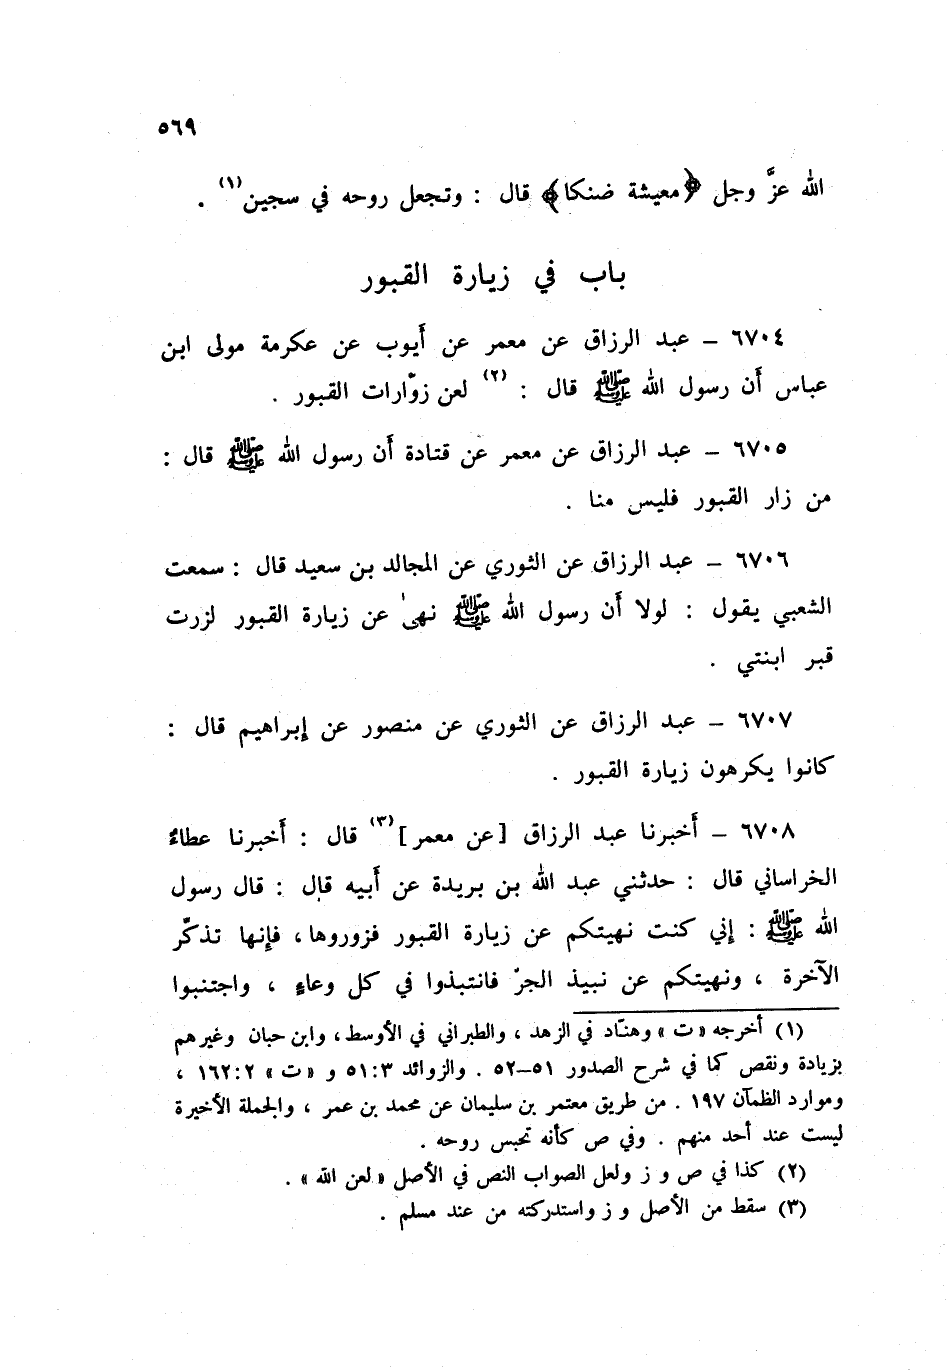 ٥٦٩
الله عزَّ وجل ﴿معيشة ضنكا﴾ قال : وتجعل روحه في سجين(١) .
باب في زيارة القبور
٦٧٠٤ – عبد الرزاق عن معمر عن أيوب عن عكرمة مولى ابن
عباس أن رسول الله ﷺ قال : (٢) لعن زوّارات القبور .
٦٧٠٥ – عبد الرزاق عن معمر عن قتادة أن رسول الله ﷺ قال :
من زار القبور فليس منا .
٦٧٠٦ – عبد الرزاق عن الثوري عن المجالد بن سعيد قال : سمعت
الشعبي يقول : لولا أن رسول الله ﷺ نهىٰ عن زيارة القبور لزرت
قبر ابنتي .
٦٧٠٧ – عبد الرزاق عن الثوري عن منصور عن إبراهيم قال :
كانوا يكرهون زيارة القبور .
٦٧٠٨ – أخبرنا عبد الرزاق [عن معمر](٣) قال : أخبرنا عطاءٌ
الخراساني قال : حدثني عبد الله بن بريدة عن أبيه قال : قال رسول
الله ﷺ : إني كنت نهيتكم عن زيارة القبور فزوروها، فإنها تذكّر
الآخرة ، ونهيتكم عن نبيذ الجرّ فانتبذوا في كل وعاءٍ ، واجتنبوا
(١) أخرجه «ت» وهنّاد في الزهد ، والطبراني في الأوسط، وابن حبان وغيرهم
بزيادة ونقص كما في شرح الصدور ٥١–٥٢ . والزوائد ٥١:٣ و «ت» ١٦٢:٢ ،
وموارد الظمآن ١٩٧ . من طريق معتمر بن سليمان عن محمد بن عمر ، والجملة الأخيرة
ليست عند أحد منهم . وفي ص كأنه تحبس روحه .
(٢) كذا في ص و ز ولعل الصواب النص في الأصل «لعن الله» .
(٣) سقط من الأصل و ز واستدركته من عند مسلم .